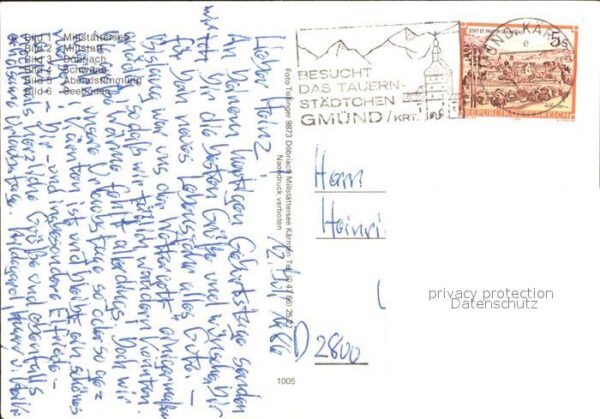 Bild 1 Millstättersee
Bild 2 Millstatt
Bild 3 Döbriach
Bild 4 Schwäne
Bild 5 Abendstimmung
Bild 6 Seeboden
BESUCHT
DAS TAUERN-
STÄDTCHEN
GMÜND/KRT.
5 S
REPUBLIK ÖSTERREICH
12. Juli 1986
Lieber Heinz!
An Deinem heutigen Geburtstage senden
wir Dir die besten Grüße und wünschen Dir
für Dein neues Lebensjahr alles Gute. –
Bislang war uns der Wettergott einigermaßen
sodaß wir täglich wandern konnten.
Wärme fehlt allerdings, doch wir
unsere Urlaubstage so oder so, gez
Kärnten ist und bleibt ein schönes
Dir und insbesondere Elfriede
herzliche Grüße und ebenfalls
Foto Tollinger 9873 Döbriach Millstättersee Kärnten Tel.
Nachdruck verboten
1005
Herrn
Heinri
D 2800
privacy protection
Datenschutz